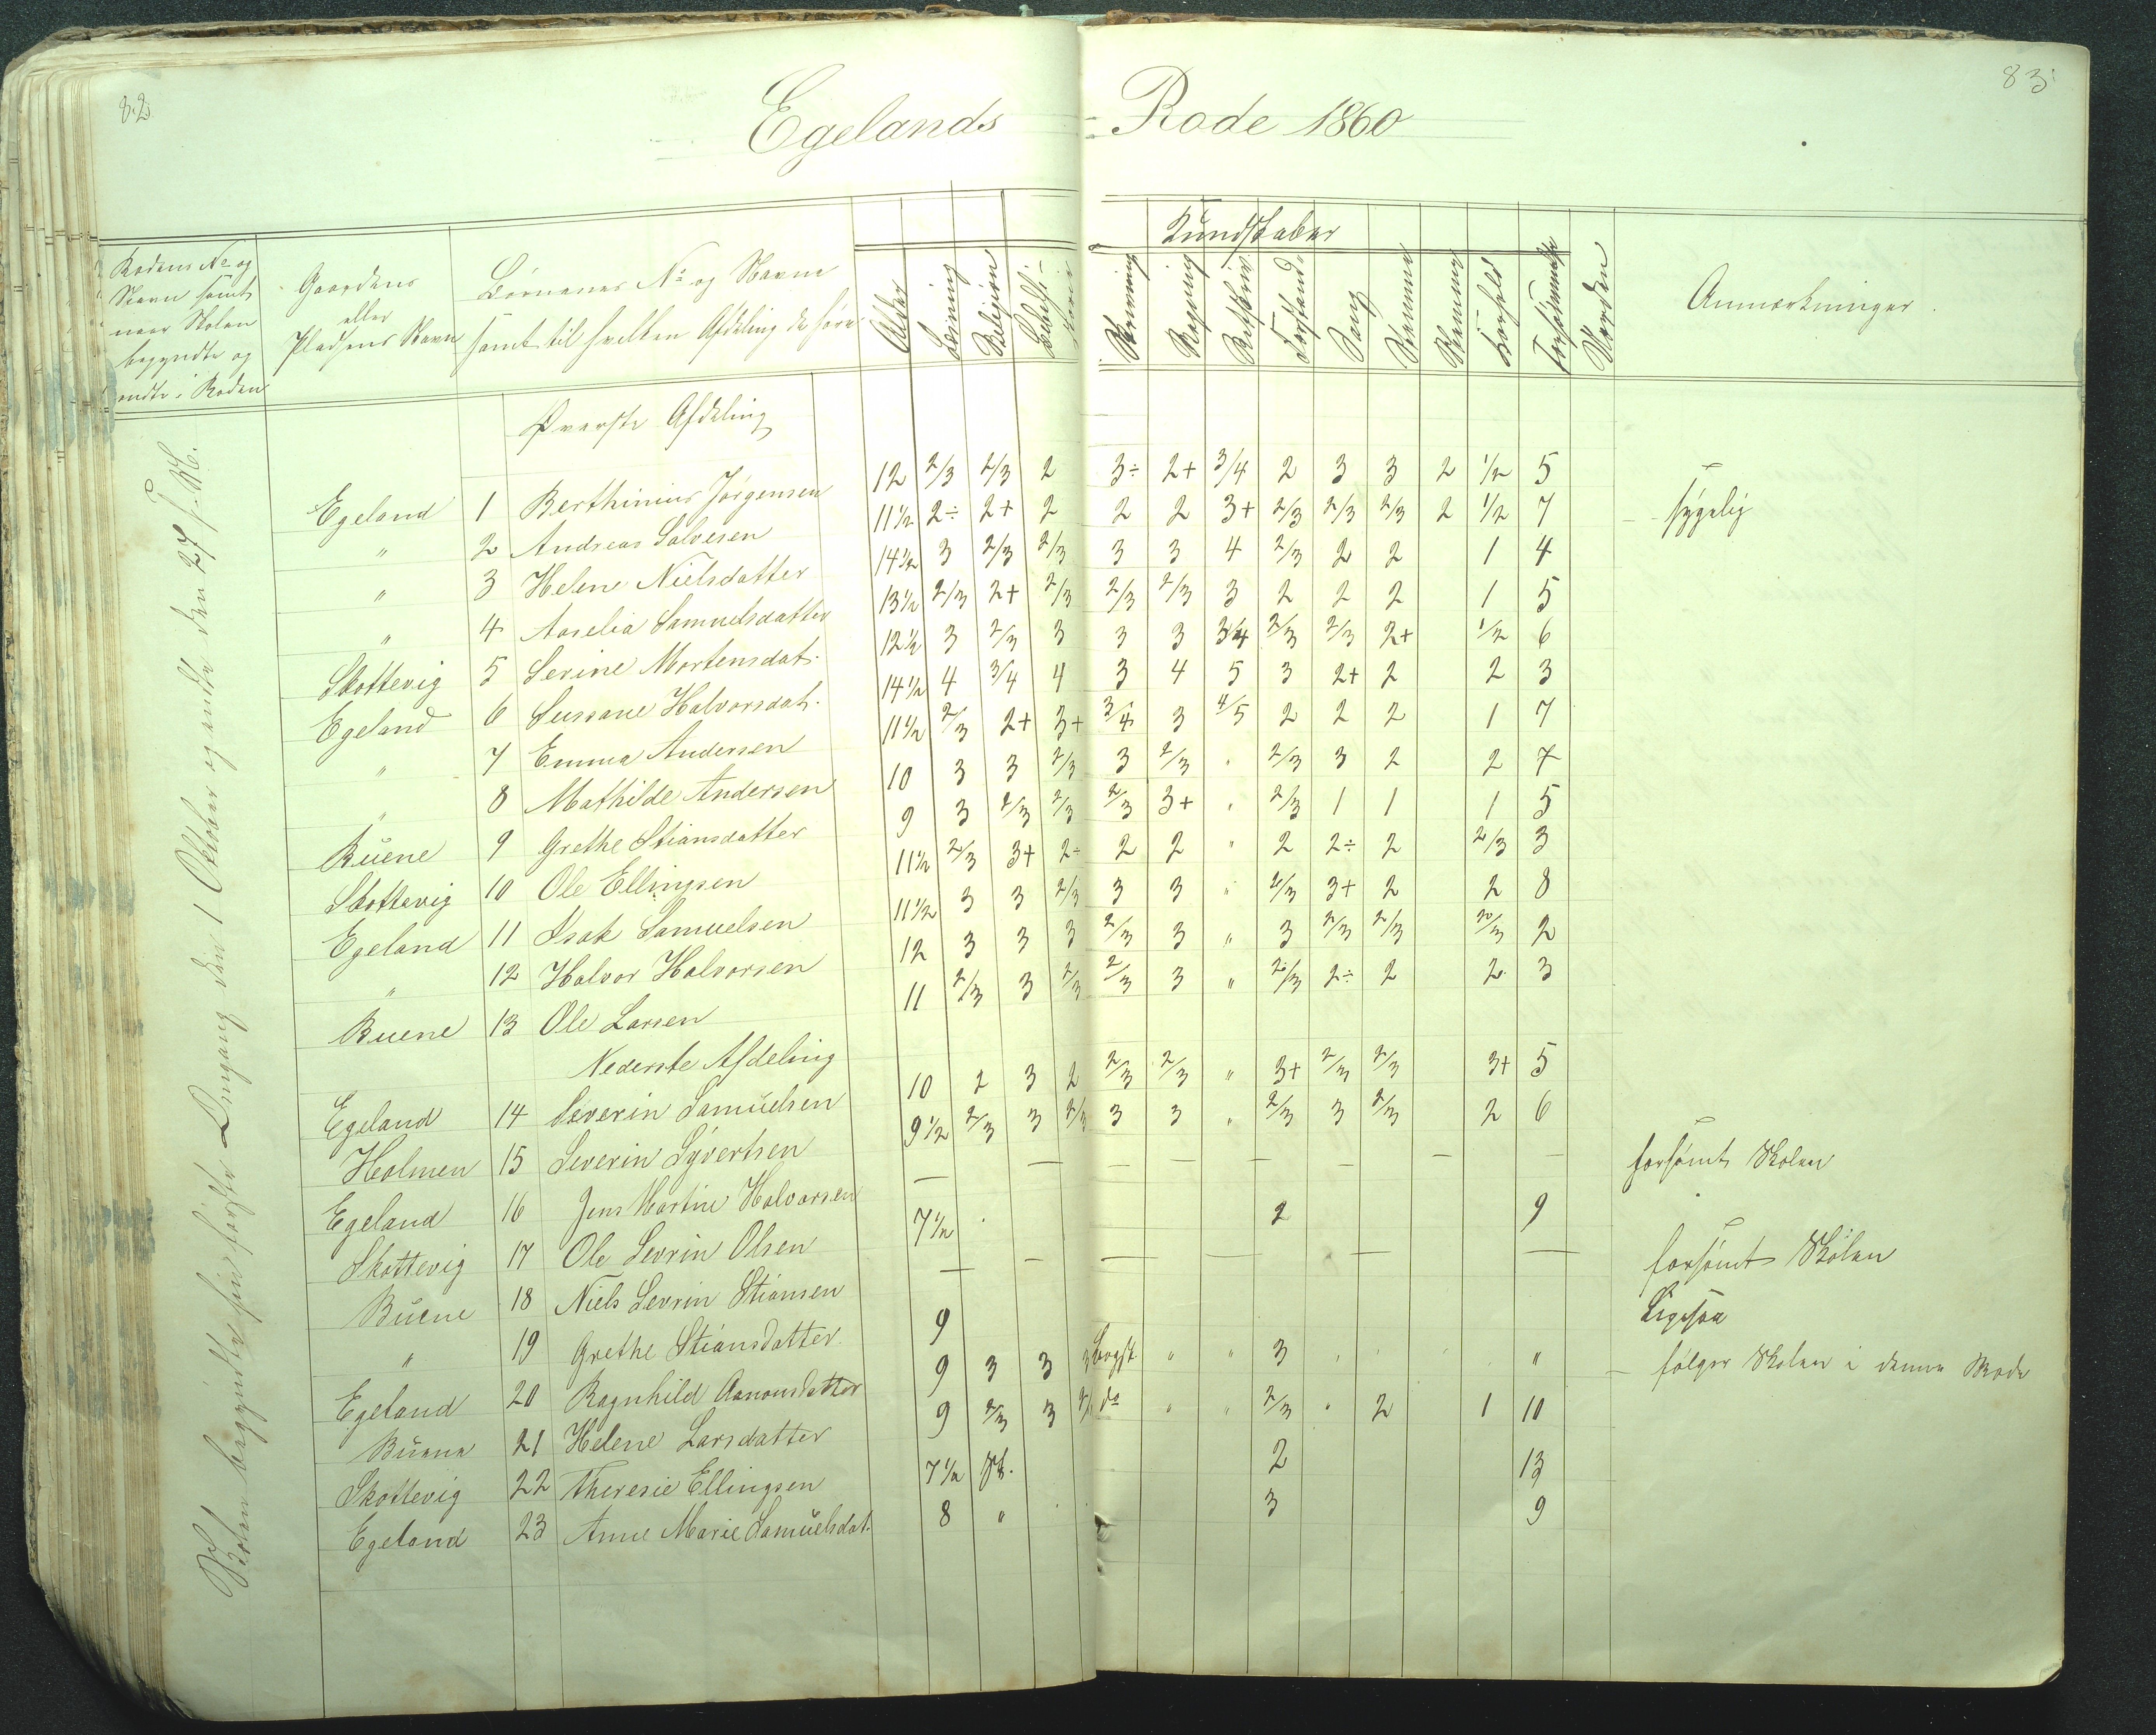 82
83
Egelands Rode 1860
Rodens No og Navn samt naar Skolen begyndte og endte i Roden
Gaardens eller Pladsens Navn
Børnenes No og Navne samt til hvilken Afdeling de høre
Alder
Læsning
Religion
Bibelhistorie
Kundskaber
Skrivning
Regning
Retskriv.
Forstand
Sang
Opførsel
Forsømmelse
Anmærkninger
Skolen begyndte sin første Omgang den 1 Oktober og endte den 27 s. M.
Øverste Afdeling
Egeland 1 Berthinius Jørgensen 12 2/3 2/3 2 3÷ 2+ 3/4 2 3 3 2 1/2 5
" 2 Andreas Salvesen 11½ 2÷ 2+ 2 2 2 3+ 2/3 2/3 2/3 2 1/2 7 sygelig
" 3 Helene Nielsdatter 14½ 3 2/3 2/3 3 3 4 2/3 2 2 1 4
" 4 Aarelia Samuelsdatter 13½ 2/3 2+ 2/3 2/3 2/3 3 2 2 2 1 5
Skottevig 5 Serine Mortensdat. 12½ 3 2/3 3 3 3 3/4 2/3 2/3 2+ 1/2 6
Egeland 6 Sussane Halvorsdat. 14½ 4 3/4 4 3 4 5 3 2+ 2 2 3
" 7 Emma Andersen 11½ 2/3 2+ 3+ 3/4 3 4/5 2 2 2 1 7
" 8 Mathilde Andersen 10 3 3 2/3 3 2/3 " 2/3 3 2 2 7
Buene 9 Grethe Stiansdatter 9 3 2/3 2/3 2/3 3+ " 2/3 1 1 1 5
Skottevig 10 Ole Ellingsen 11½ 2/3 3+ 2÷ 2 2 " 2 2÷ 2 2/3 3
Egeland 11 Isak Samuelsen 11½ 3 3 2/3 3 3 " 2/3 3+ 2 2 8
" 12 Halvor Halvorsen 12 3 3 3 2/3 3 " 3 2/3 2/3 2/3 2
Buene 13 Ole Larsen 11 2/3 3 2/3 2/3 3 " 2/3 2÷ 2 2 3
Nederste Afdeling
Egeland 14 Severin Samuelsen 10 2 3 2 2/3 2/3 " 3+ 2/3 2/3 3+ 5
Holmen 15 Severin Syvertsen 9½ 2/3 3 2/3 3 3 " 2/3 3 2/3 2 6
Egeland 16 Jens Martin Halvorsen — — — — — — — — forsømt Skolen
Skottevig 17 Ole Sevrin Olsen 7½ 2 9
Buene 18 Niels Sevrin Stiansen — — — — — — forsømt Skolen
" 19 Grethe Stiansdatter 9 Ligesaa
Egeland 20 Ragnhild Aanonsdatter 9 3 3 3 bogst " " 3 " følger Skolen i denne Rode
Buene 21 Helene Larsdatter 9 2/3 3 do " " 2/3 " 2 1 10
Skottevig 22 Theresie Ellingsen 7½ St. 2 13
Egeland 23 Anne Marie Samuelsdat. 8 " 3 9